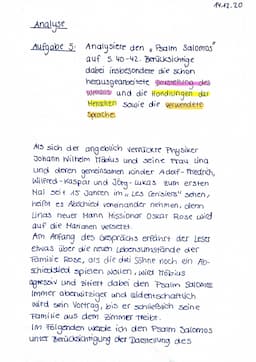 14.12.20
Analyse
Aufgabe 5: Analysiere den „Psalm Salomos"
auf S. 40-42. Berücksichtige
dabei insbesondere die schon
herausgearbeitete Darstellung des
und die Handlungen der
Menschen sowie die verwendete
Sprache.
Als sich der angeblich verrückte Physiker
Johann Wilhelm Möbius und seine Frau Lina
und deren gemeinsamen Kinder Adolf-Friedrich,
Wilfred-Kaspar und Jörg-Lukas zum ersten
Mal seit 15 Jahren im „Les Cerisiers" sehen,
heißt es Abschied voneinander nehmen, denn
Linas neuer Mann Missionar Oskar Rose wird
auf die Marianen versetzt.
Am Anfang des Gesprächs erfährt der Leser
etwas über die neuen Lebensumstände der
Familie Rose, als die drei Söhne noch ein Ab-
schiedslied spielen wollen, wird Möbius
agressiv und zitiert dabei den Psalm Salomos
Immer aberwitziger und leidenschaftlich
wird sein Vortrag, bis er schließlich seine
Familie aus dem Zimmer treibt.
Im Folgenden werde ich den Psalm Salomos
unter Berücksichtigung der Darstellung des